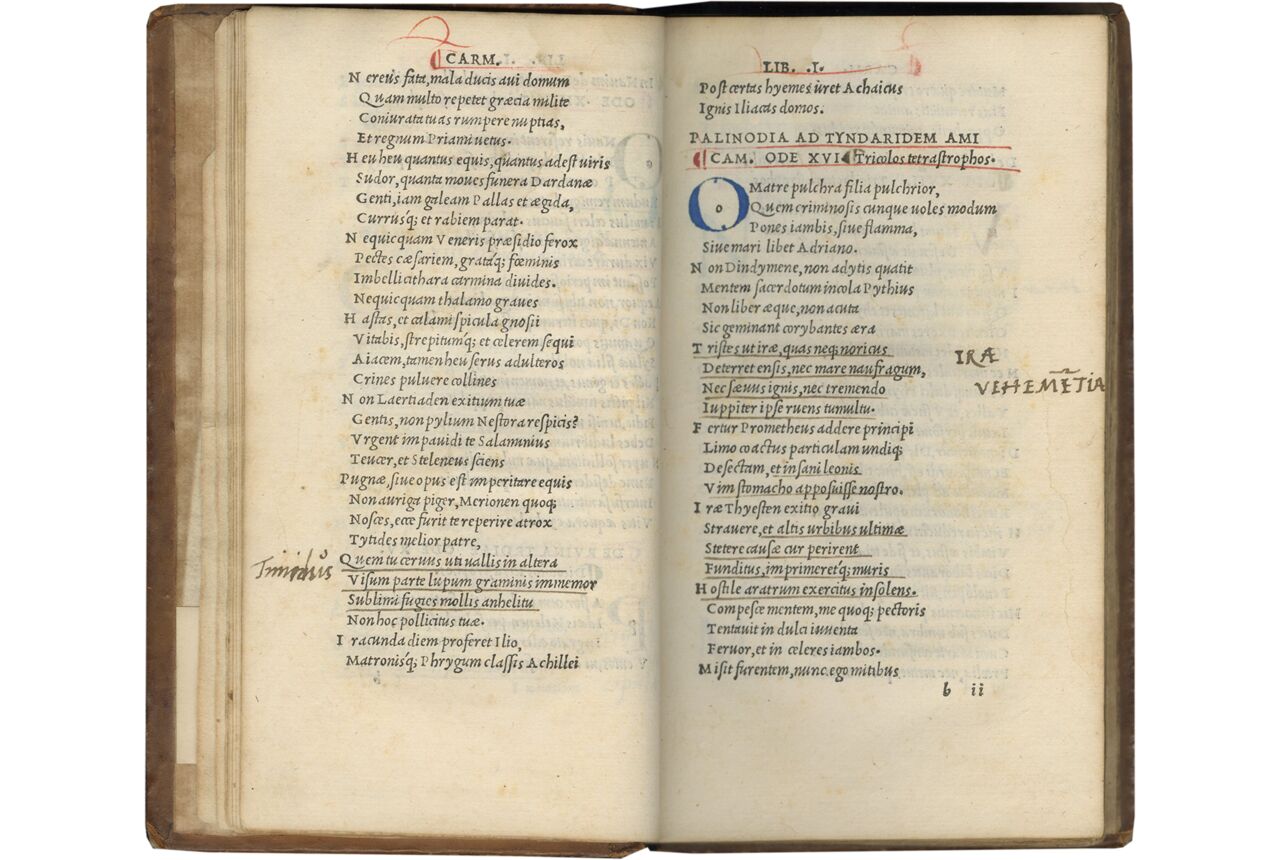 CARM.
Nereus fata, mala ducis aui domum
Quam multo repetet græcia milite
Coniurata tuas rumpere nuptias,
Et regnum Priami uetus.
Heu heu quantus equis, quantus adest uiris
Sudor, quanta moues funera Dardanæ
Genti, iam galeam Pallas et ægida,
Currusq; et rabiem parat.
Nequicquam Veneris præsidio ferox
Pectes cæsariem, grataq; fœminis
Imbelli cithara carmina diuides.
Nequicquam thalamo graues
Hastas, et calami spicula gnosii
Vitabis, strepitumq; et celerem sequi
Aiacem, tamen heu serus adulteros
Crines puluere collines
Non Laertiaden exitium tuæ
Gentis, non pylium Nestora respicis?
Vrgent impauidi te Salaminius
Teucer, et Steleneus sciens
Pugnæ, siue opus est imperitare equis
Non auriga piger, Merionen quoq;
Nosces, ecce furit te reperire atrox
Tytides melior patre,
Quem tu ceruus uti uallis in altera
Visum parte lupum graminis immemor
Sublimi fugies mollis anhelitu
Non hoc pollicitus tuæ.
Iracunda diem proferet Ilio,
Matronisq; Phrygum classis Achillei
LIB. .I.
Post certas hyemes uret Achaicus
Ignis Iliacas domos.
PALINODIA AD TYNDARIDEM AMI
CAM. ODE XVI Tricolos tetrastrophos.
O Matre pulchra filia pulchrior,
Quem criminosis cunque uoles modum
Pones iambis, siue flamma,
Siue mari libet Adriano.
Non Dindymene, non adytis quatit
Mentem sacerdotum incola Pythius
Non liber æque, non acuta
Sic geminant corybantes æra
Tristes ut iræ, quas neq; noricus
Deterret ensis, nec mare naufragum,
Nec sæuus ignis, nec tremendo
Iuppiter ipse ruens tumultu.
Fertur Prometheus addere principi
Limo coactus particulam undiq;
Desectam, et insani leonis
Vim stomacho apposuisse nostro.
Iræ Thyesten exitio graui
Strauere, et altis urbibus ultimæ
Stetere causæ cur perirent
Funditus, imprimeretq; muris
Hostile aratrum exercitus insolens.
Compesce mentem, me quoq; pectoris
Tentauit in dulci iuuenta
Feruor, et in celeres iambos.
Misit furentem, nunc ego mitibus
b ii
IRÆ
VEHEMẼTIA